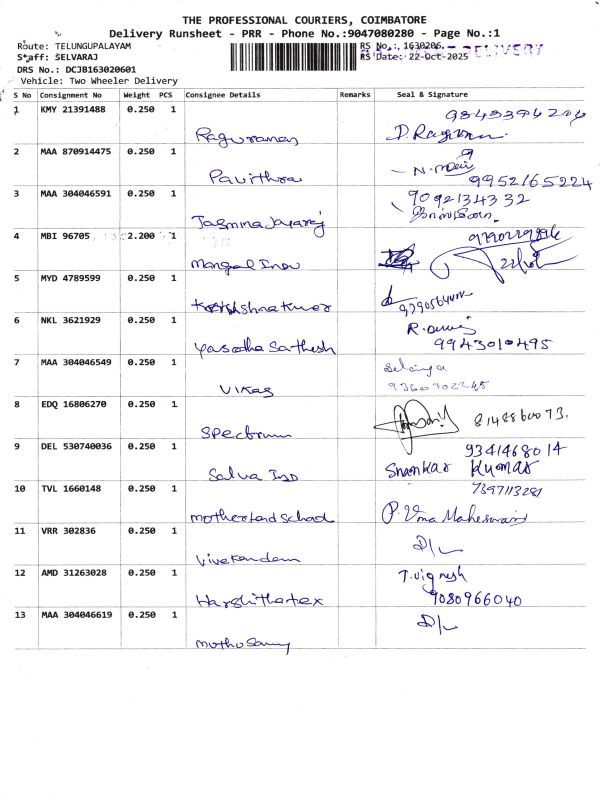 THE PROFESSIONAL COURIERS, COIMBATORE
Delivery Runsheet - PRR - Phone No.:9047080280 - Page No.:1
Route: TELUNGUPALAYAM
RS No.: 1630206
DELIVERY
Staff: SELVARAJ
RS Date: 22-Oct-2025
DRS No.: DCJB163020601
Vehicle: Two Wheeler Delivery
S No Consignment No Weight PCS Consignee Details Remarks Seal & Signature
1 KMY 21391488 0.250 1
Raguraman
2 MAA 870914475 0.250 1
Pavithra
9952165224
3 MAA 304046591 0.250 1
9092134332
Jasmina Jayaraj
4 MBI 96705 2.200 1
Mangal Inov
5 MYD 4789599 0.250 1
6 NKL 3621929 0.250 1
Yasodha Sathesh
9943010495
7 MAA 304046549 0.250 1
Vikas
8 EDQ 16806270 0.250 1
8148860073.
Spectrum
9 DEL 530740036 0.250 1
9341468014
Salva Ind
Shankar Kumar
10 TVL 1660148 0.250 1
7397113281
motherland school
P. Uma Maheswari
11 VRR 302836 0.250 1
D/L
Vivekandam
12 AMD 31263028 0.250 1
T. Vignesh
Harshithatex
9080966040
13 MAA 304046619 0.250 1
D/L
muthusamy